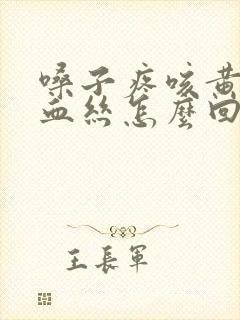 嗓子疼咳黄
血絲怎麼回
王長軍